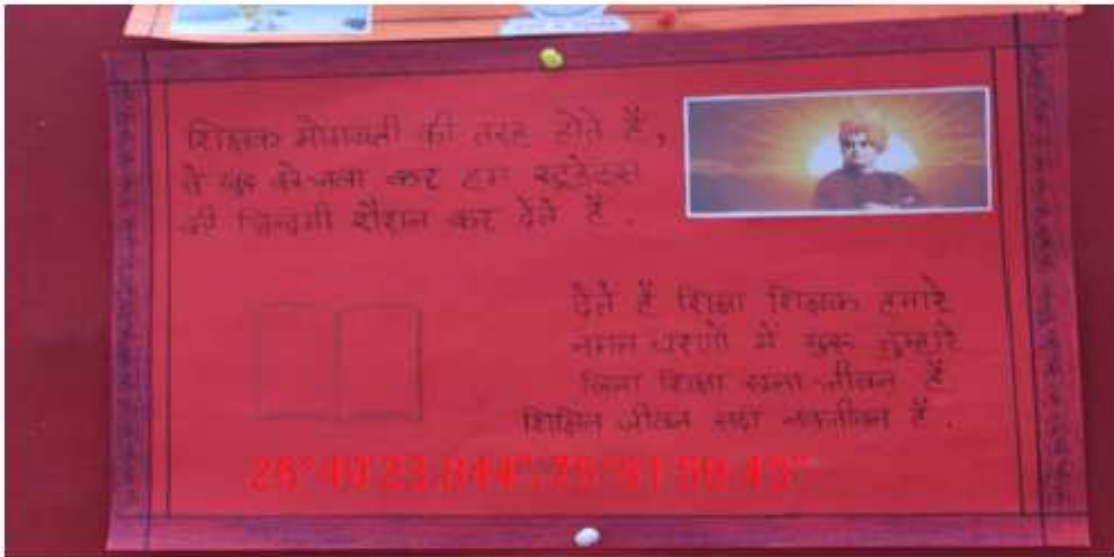 शिक्षक मोमबत्ती की तरह होते हैं,
वे खुद को जला कर हम स्टूडेंट्स
की जिन्दगी रौशन कर देते हैं.
देते हैं शिक्षा शिक्षक हमारे
नमन चरणों में गुरू तुम्हारे
बिना शिक्षा सूना जीवन हैं
शिक्षित जीवन सदा नवजीवन हैं.